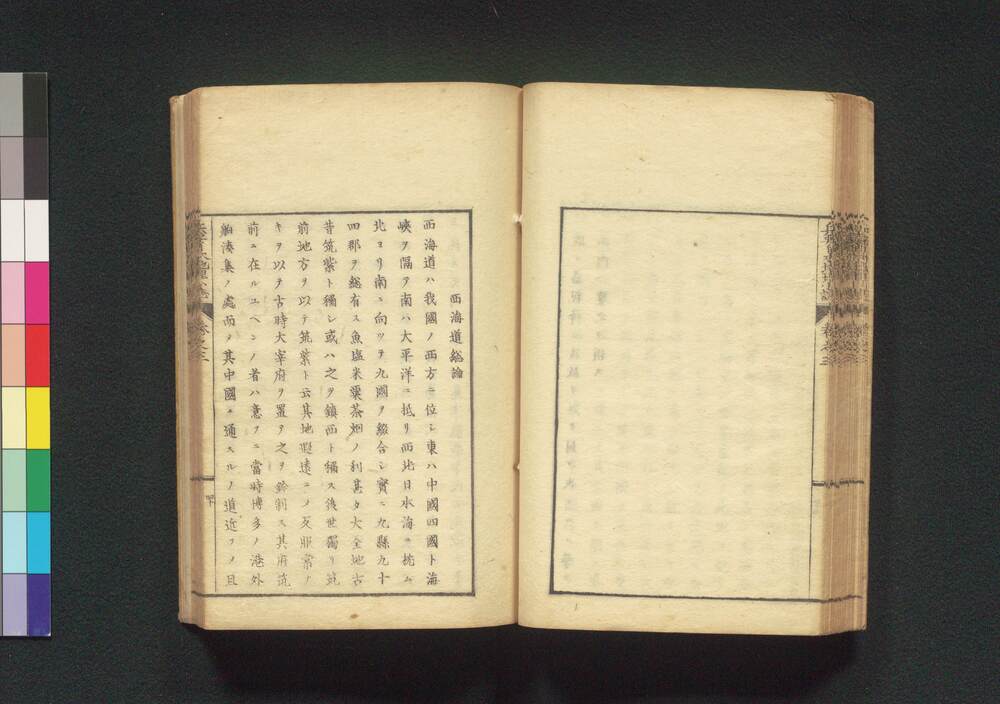 西海道総論
西海道ハ我國ノ西方ニ位シ東ハ中國四國ト海
峽ヲ隔テ南ハ大平洋ニ抵リ西北日本海ニ枕ム
北ヨリ南ニ向ツテ九國ヲ綴合シ實ニ九縣九十
四郡ヲ総有ス魚塩米粟茶烟ノ利甚タ大全地古
昔筑紫ト稱シ或ハ之ヲ鎮西ト稱ス後世獨リ筑
前地方ヲ以テ筑紫ト云其地遐遠ニノ反非常ノ
キヲ以テ古時大宰府ヲ置テ之ヲ鈐制ス其府筑
前ニ在ルユヘンノ者ハ意フニ當時博多ノ港外
舶湊集ノ處而メ其中國ニ通スルノ道近フノ且